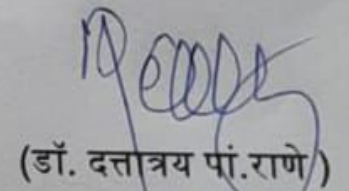 (डॉ. दत्तात्रय पां.राणे)